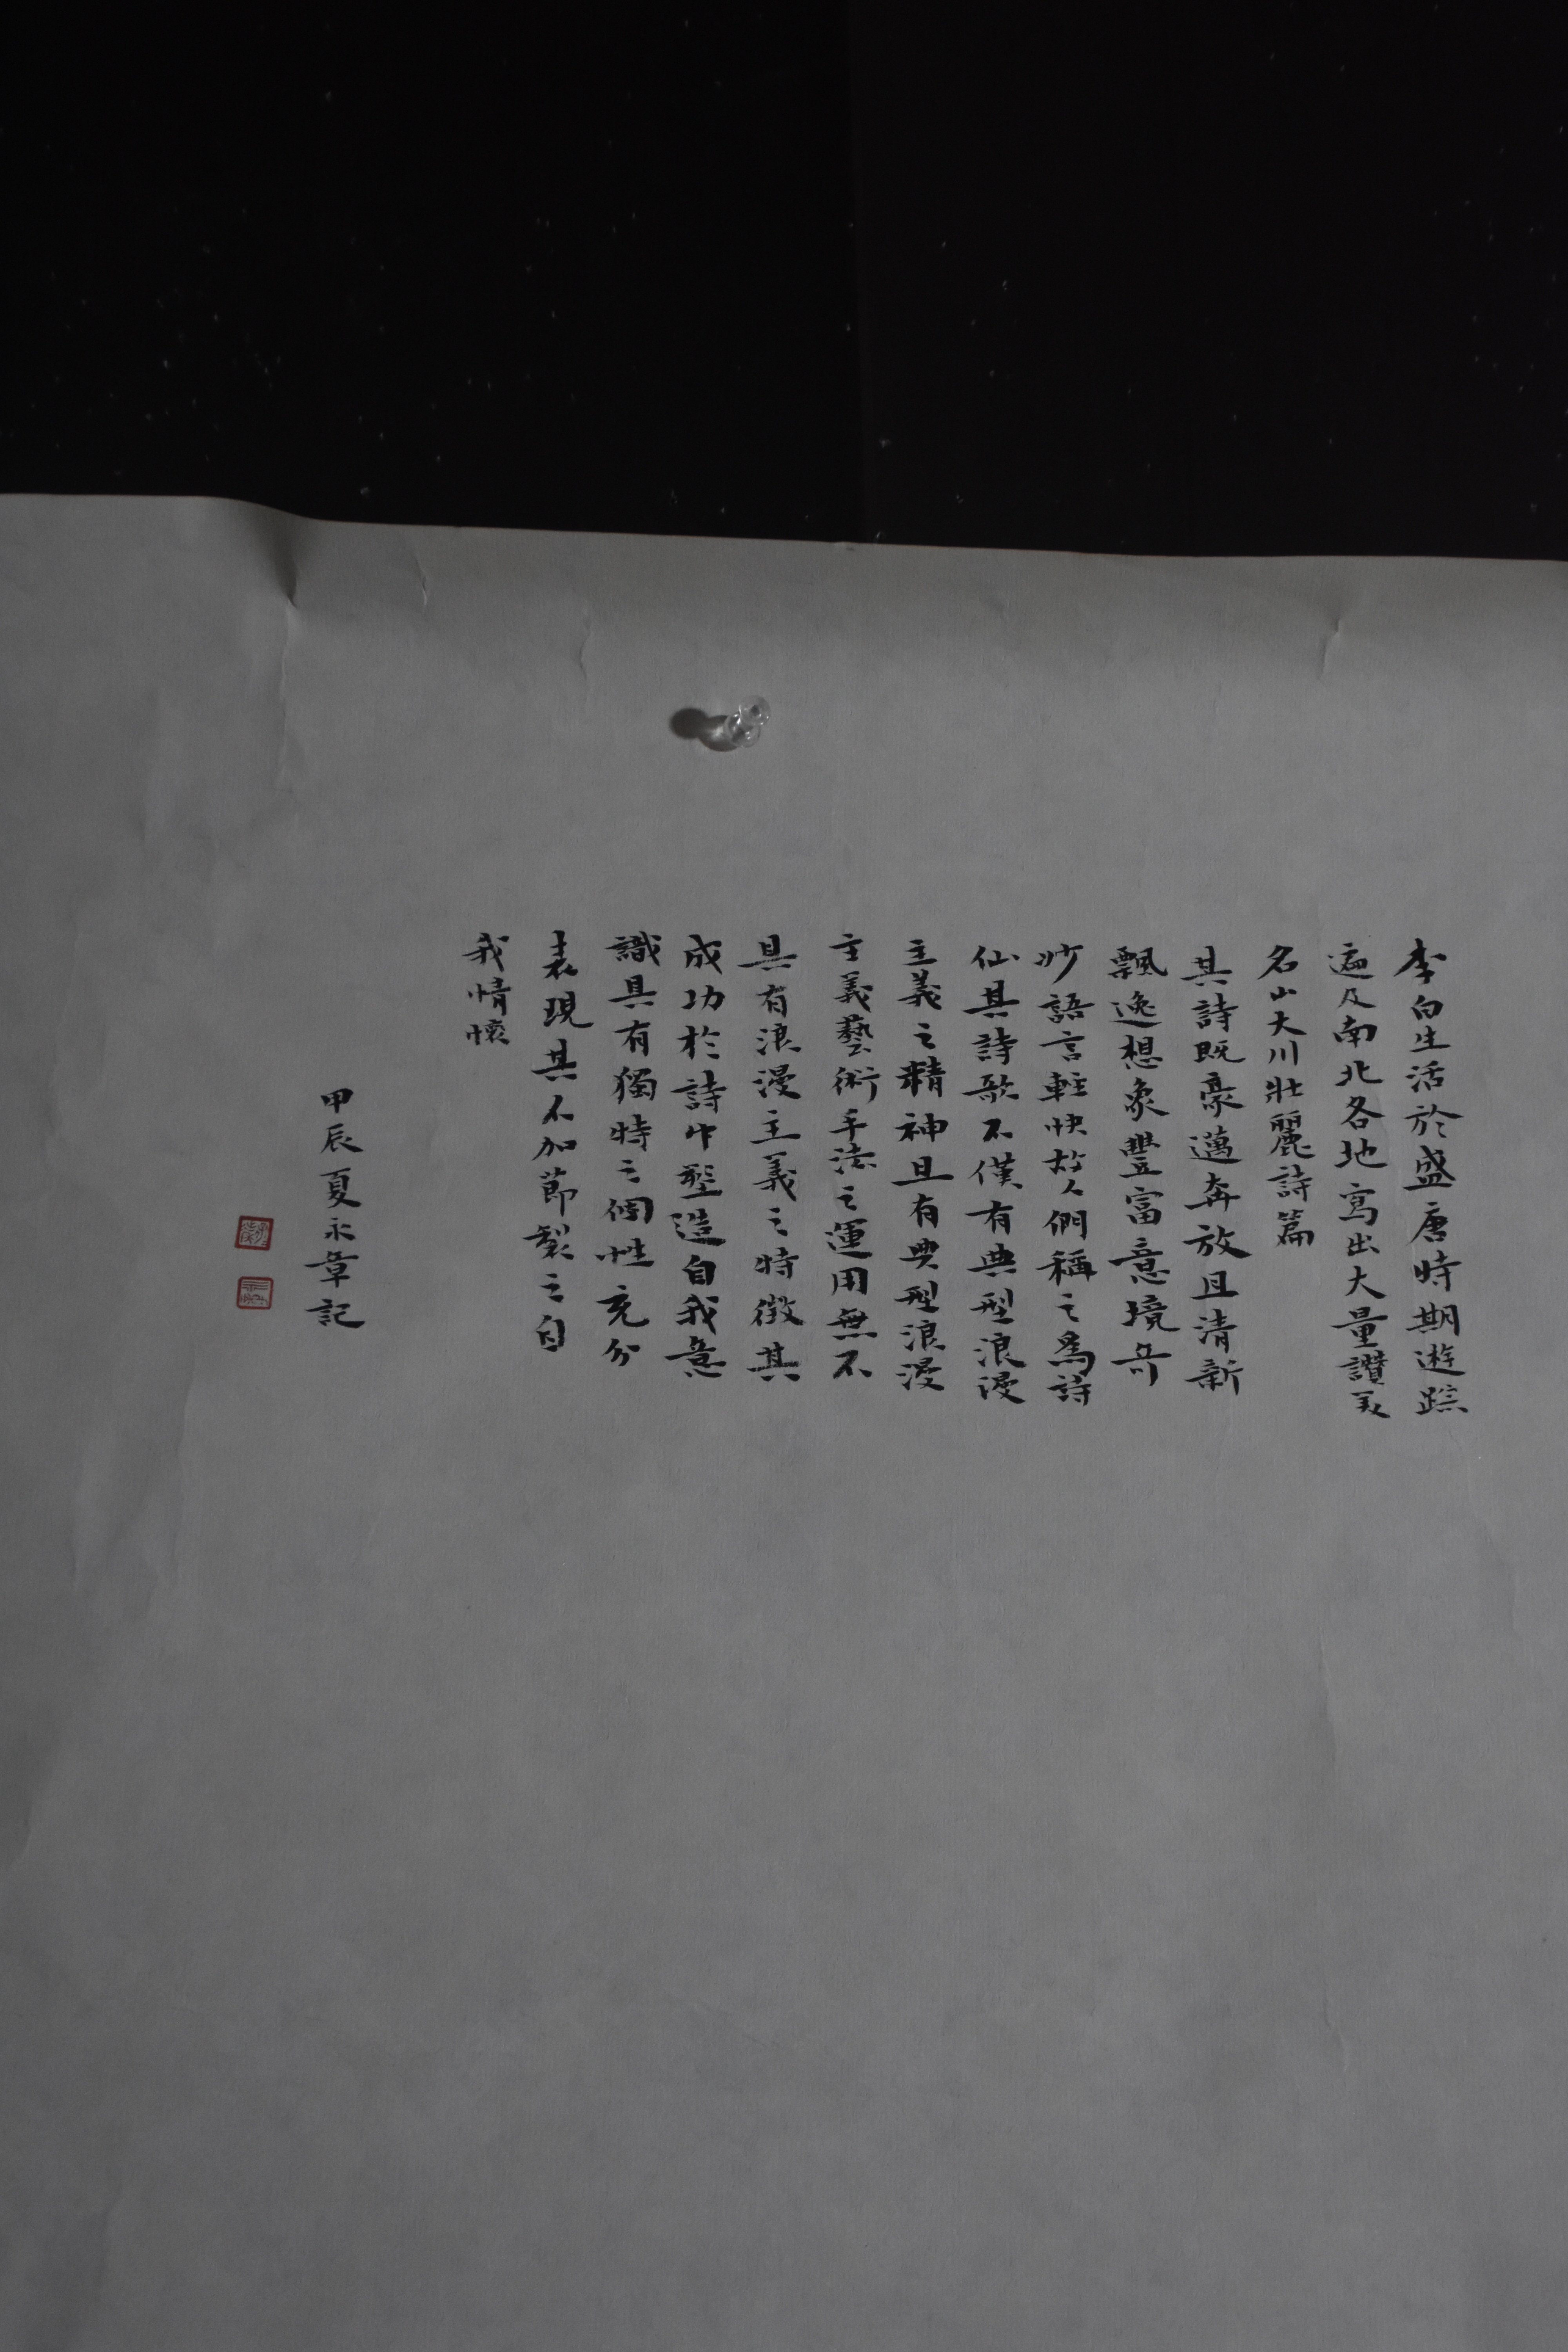 李白生活於盛唐時期遊踪
遍及南北各地寫出大量讚美
名山大川壯麗詩篇
其詩既豪邁奔放且清新
飄逸想象豐富意境奇
妙語言輕快故人們稱之爲詩
仙其詩歌不僅有典型浪漫
主義之精神且有典型浪漫
主義藝術手法之運用無不
具有浪漫主義之特徵其
成功於詩中塑造自我意
識具有獨特之個性充分
表現其不加節製之自
我情懷
甲辰夏永章記